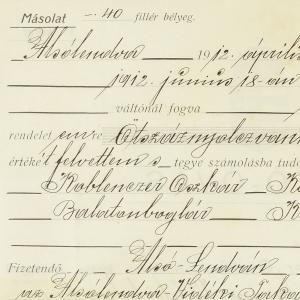 Másolat -.40 fillér bélyeg.
Alsólendva 1912. április
1912. junius 18-án
váltónál fogva
rendelet emre Ötszáznyolczvan
értéke't felvettem s tegye számolásba tudó
Koblenczer Oszkár K
Balatonboglár K
Alsó-Lendván
Fizetendő
az Alsólendva-Vidéki Taka